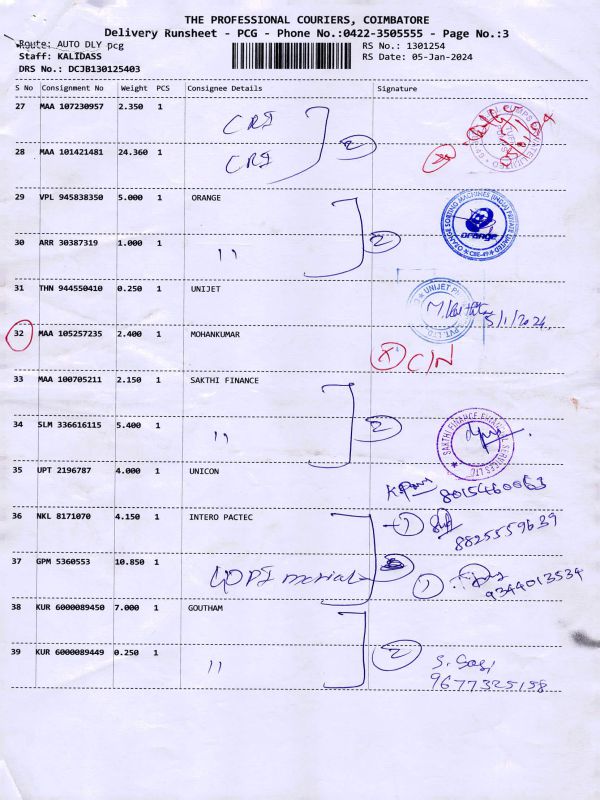 THE PROFESSIONAL COURIERS, COIMBATORE
Delivery Runsheet - PCG - Phone No.:0422-3505555 - Page No.:3
Route: AUTO DLY pcg RS No.: 1301254
Staff: KALIDASS RS Date: 05-Jan-2024
DRS No.: DCJB130125403
S No Consignment No Weight PCS Consignee Details Signature
27 MAA 107230957 2.350 1 CRI
2
28 MAA 101421481 24.360 1 CRI
29 VPL 945838350 5.000 1 ORANGE
ORANGE SORTING MACHINES (INDIA) PRIVATE LIMITED
orange
* CBE-49 *
30 ARR 30387319 1.000 1 11 2
31 THN 944550410 0.250 1 UNIJET
UNIJET
PVT. LTD.
5/1/2024
32 MAA 105257235 2.400 1 MOHANKUMAR
X C/N
33 MAA 100705211 2.150 1 SAKTHI FINANCE
34 SLM 336616115 5.400 1 11 2
SAKTHI FINANCE FINANCIAL SERVICES LTD
35 UPT 2196787 4.000 1 UNICON
8015460063
36 NKL 8171070 4.150 1 INTERO PACTEC 1
8825559639
37 GPM 5360553 10.850 1 GOPI 1
9344013534
38 KUR 6000089450 7.000 1 GOUTHAM
2
39 KUR 6000089449 0.250 1 11 S. Sasi
9677325158